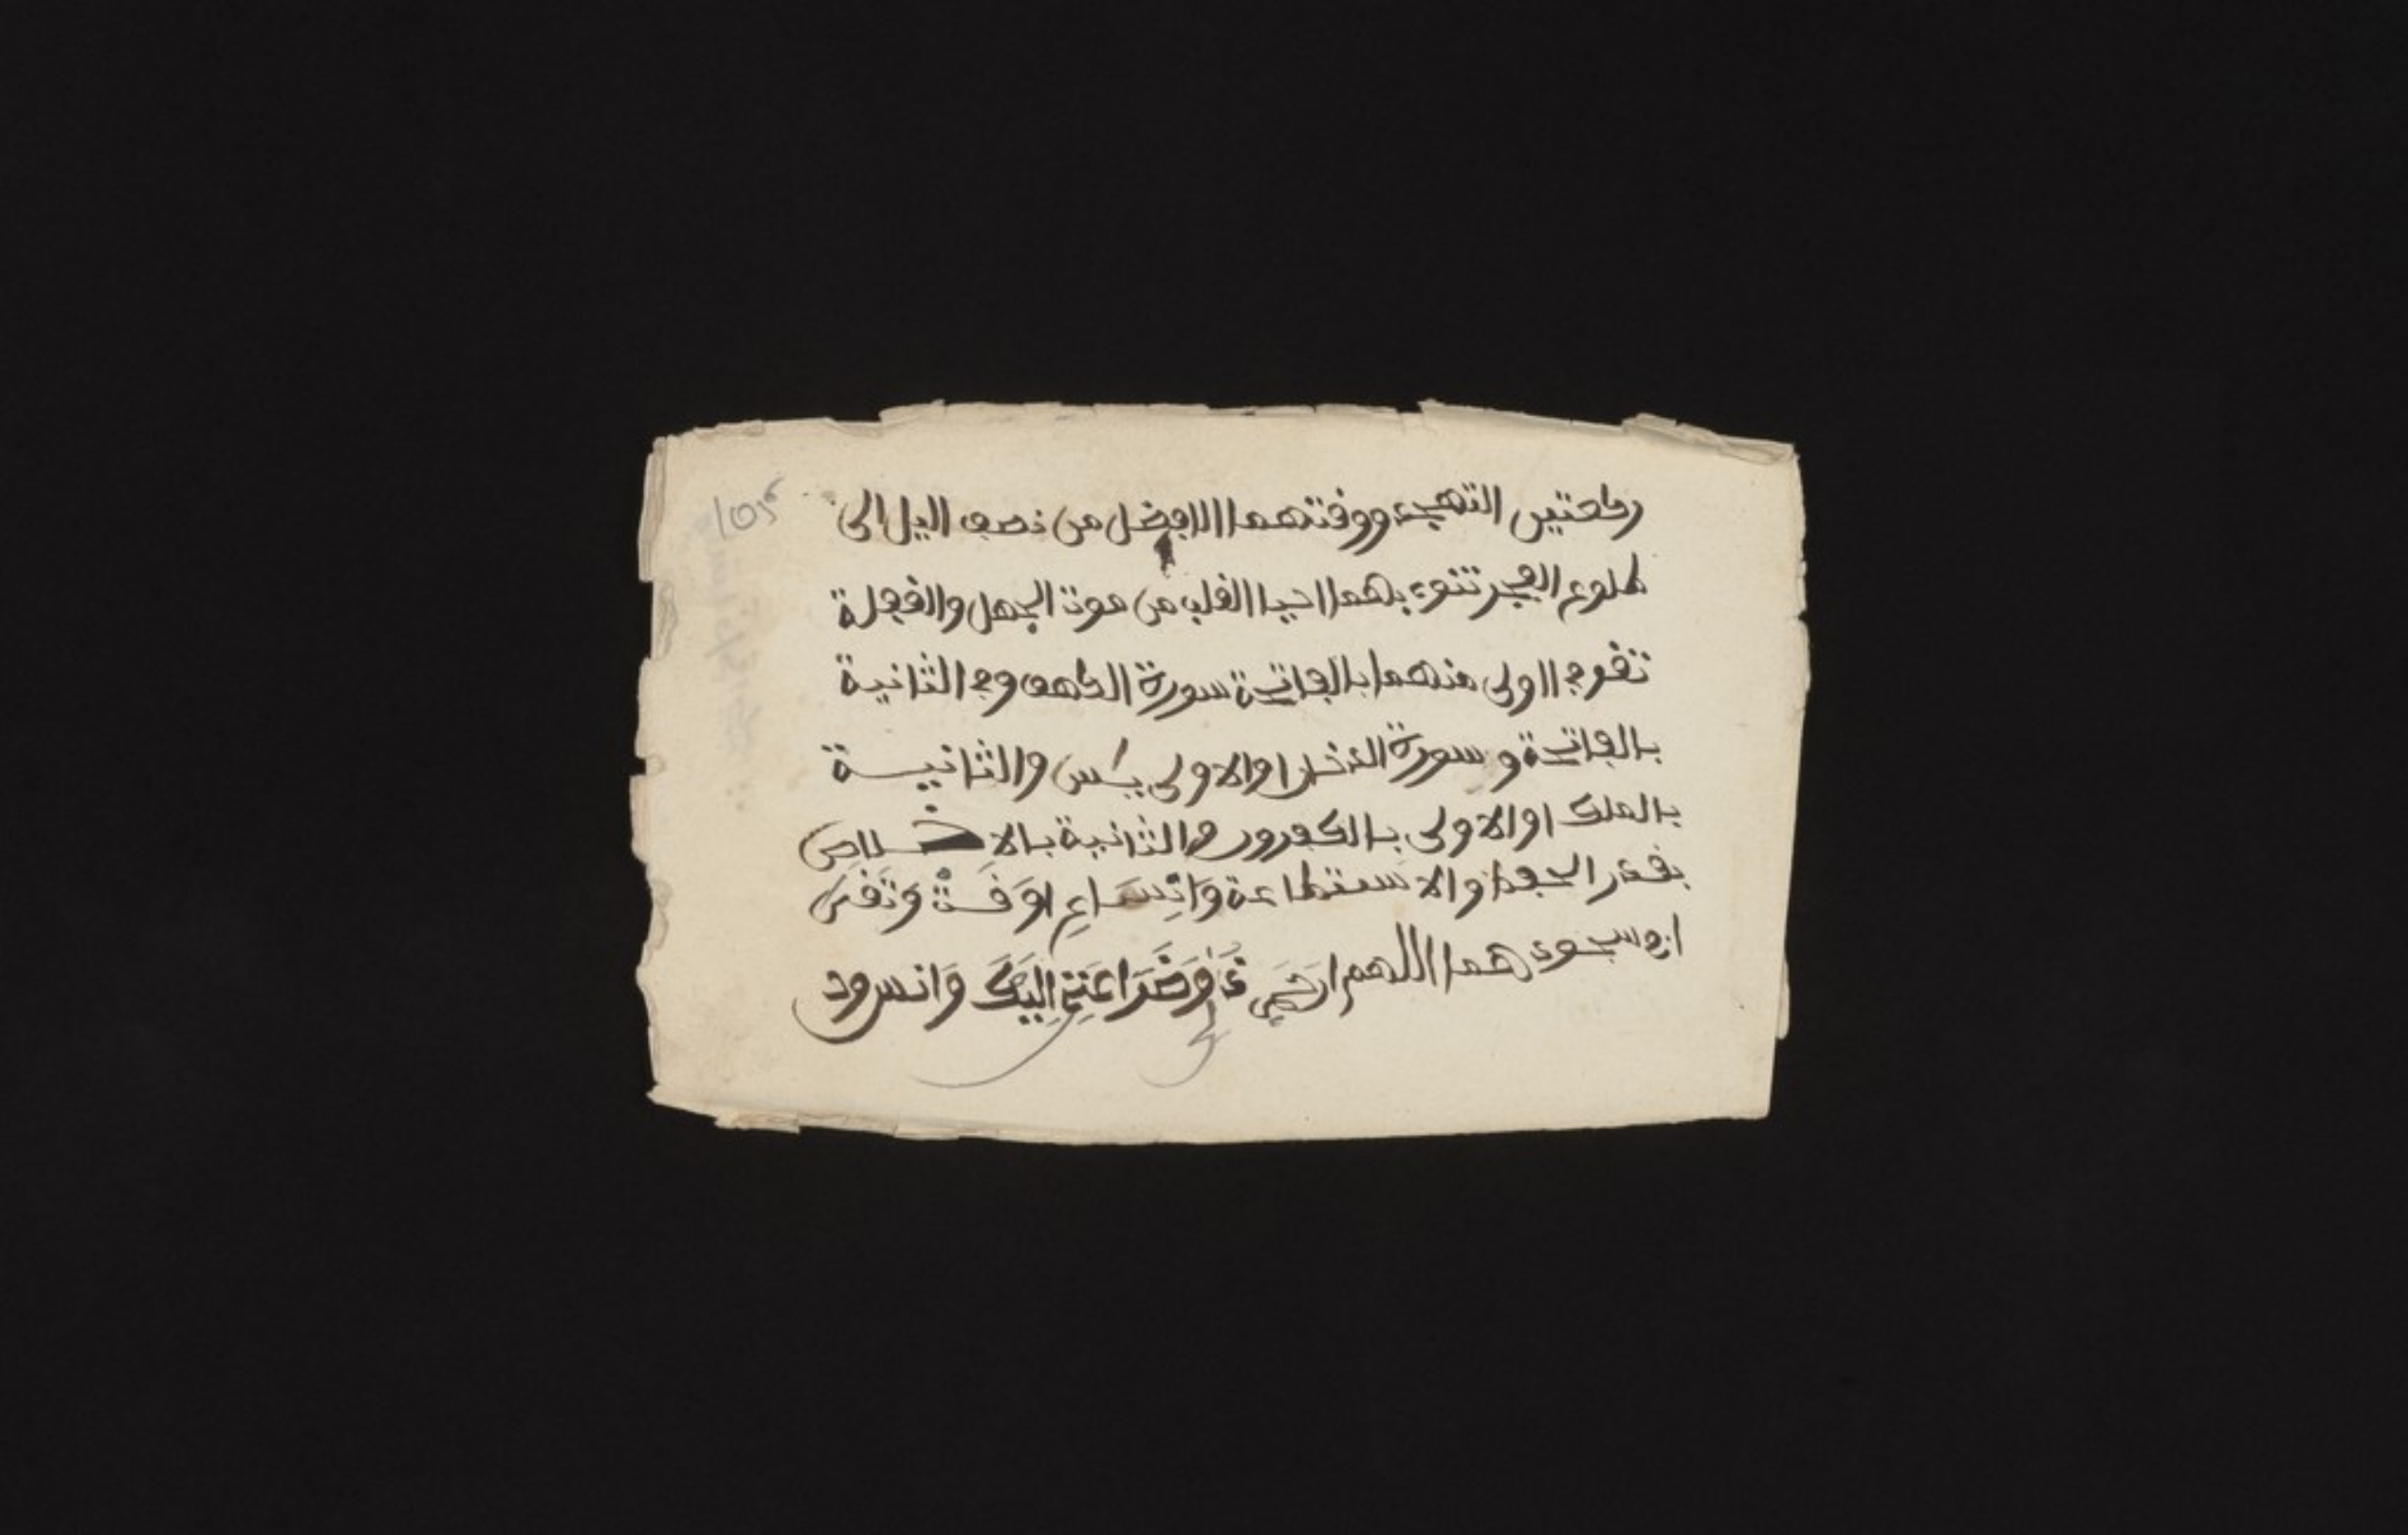 ركعتين التهجد ووقتهما الافضل من نصف اليل الى
طلوع الفجر تنوى بهما احيا القلب من موت الجهل والغفلة
تقرء في الاولى منهما بالفاتحة سورة الكهف وفي الثانية
بالفاتحة وسورة الدخان او الاولى يس والثانية
بالملك او الاولى بالكفرون والثانية بالاخلاص
بقدر الحفظ والاستطاعة واتساع الوقت وتقرء
في سجودهما اللهم ارحم ذلي وتضرعي اليك وانس
105